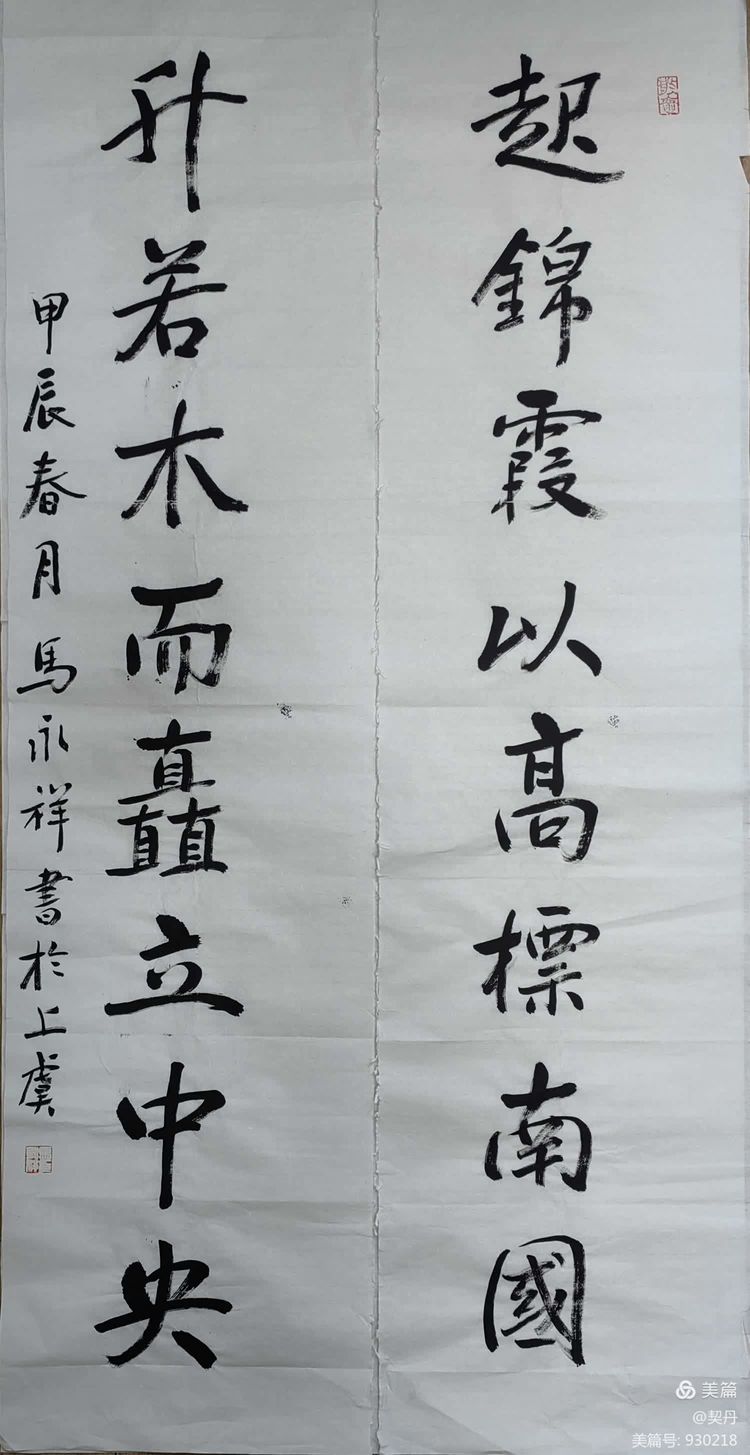 起錦霞以高標南國
升若木而矗立中央
甲辰春月馬永祥書於上虞
美篇
@契丹
美篇号: 930218